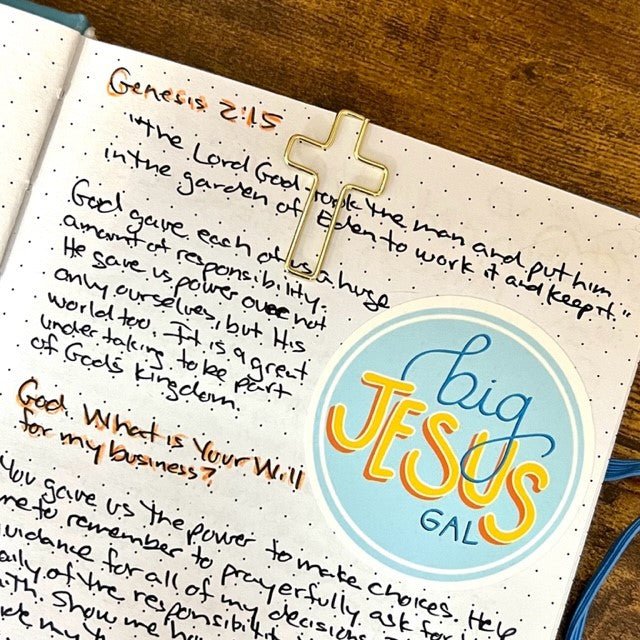 Genesis 2:15
"The Lord God took the man and put him
in the garden of Eden to work it and keep it."
God gave each of us a huge
amount of responsibility.
He gave us power over not
only ourselves, but His
world too. It is a great
undertaking to be part
of God's kingdom.
God. What is Your Will
for my business?
You gave us the power to make choices. Help
me to remember to prayerfully ask for
guidance for all of my decisions
of the responsibility
Show me
my
big
JESUS
GAL